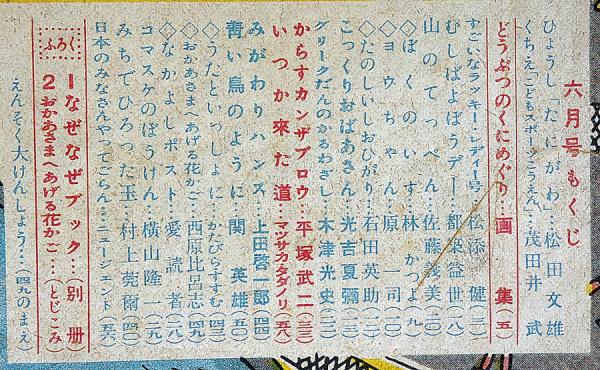 六月号もくじ
ひょうし「たにがわ」松田文雄
くちえ「こどもスポーツこうえん」…茂田井武
どうぶつのくにめぐり…画集(五)
すごいなラッキー・レディー号…松添健(三)
むしばよぼうデー…都築益世(一八)
山のてっぺん…佐藤義美(二〇)
◇ぼくのいす…林かつよ(九)
◇ヨウちゃん…原一司(一〇)
◇たのしいしおひがり…石田英助(一二)
こっくりおばあさん…光吉夏彌(一三)
グリークだんのかるわざし…木津光史(二三)
からすカンザブロウ…平塚武二(三三)
いつか来た道…マツサカタダノリ(五八)
みがわりハンス…上田啓一郎(四四)
青い鳥のように…関英雄(五〇)
◇うたといっしょに…かんびらすすむ(三〇)
◇おかあさまへあげる花かご…西原比呂志(四九)
◇なかよしポスト…愛読者(六八)
コマスケのぼうけん…横山隆一(二九)
みちでひろった玉…村上莞爾(四〇)
日本のみなさんやってごらん…ニュージェント(五六)
ふろく
1なぜなぜブック…(別冊)
2おかあさまへあげる花かご…(とじこみ)
えんそく大けんしょう…(四九のまえ)